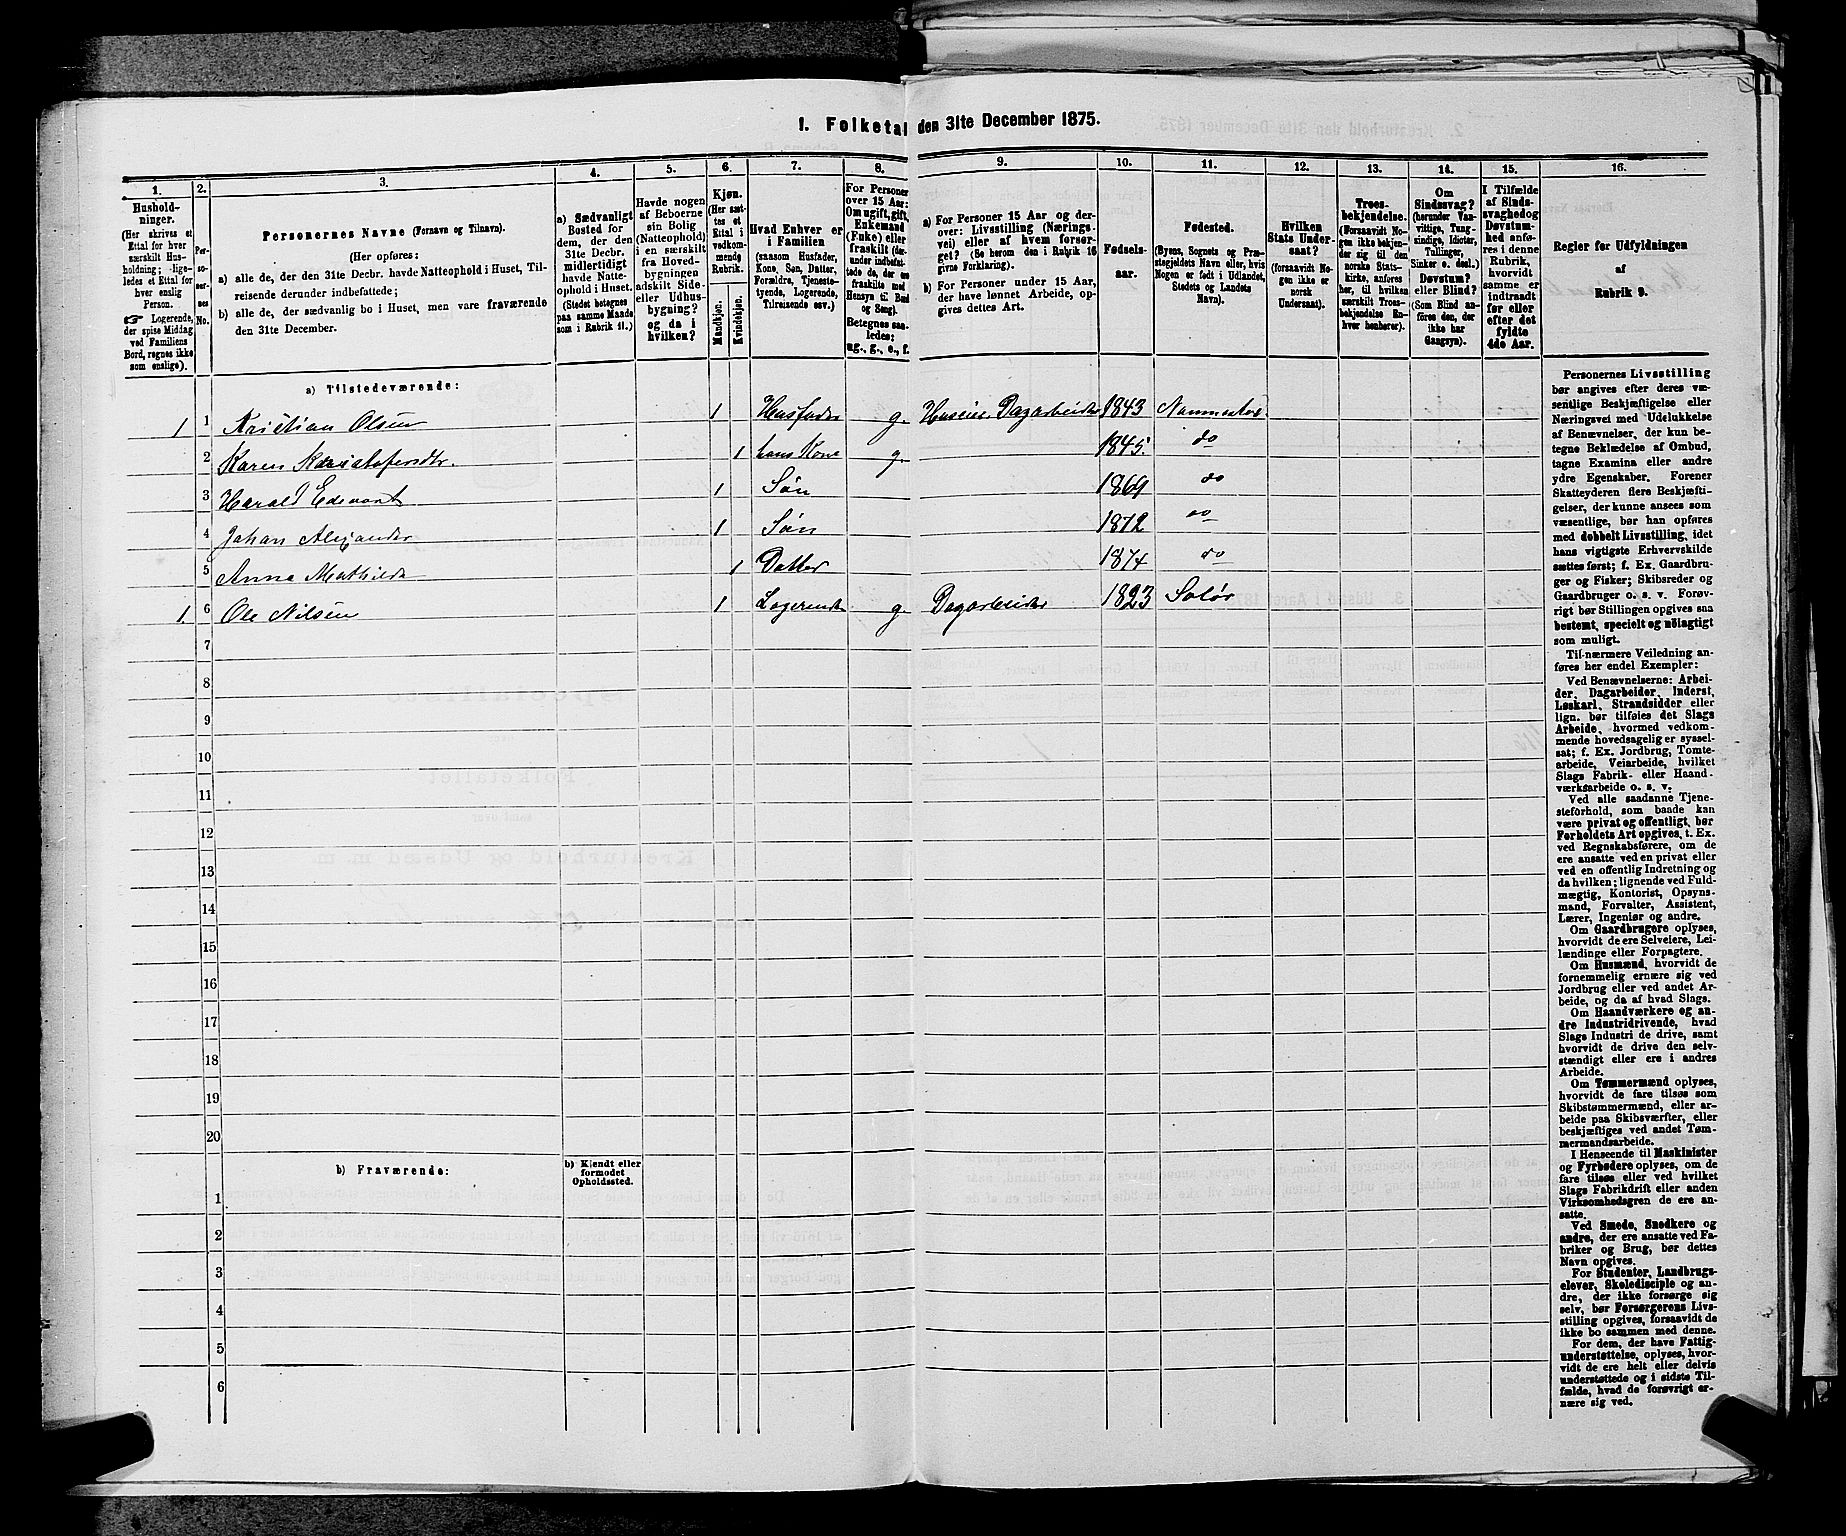 1. Folketal den 31te December 1875.
1.
Hushold-
ninger.
(Her skrives et
Ettal for hver
særskilt Hus-
holdning; lige-
ledes et Ettal for
hver enslig
Person.
☞ Logerende,
der spise Middag
ved Familiens
Bord, regnes ikke
som enslige).
2.
Per-
so-
ner-
nes
No.
3.
Personernes Navne (Fornavn og Tilnavn).
(Her opføres:
a) alle de, der den 31te Decbr. havde Natteophold i Huset, Til-
reisende derunder indbefattede;
b) alle de, der sædvanlig bo i Huset, men vare fraværende
den 31te December.
4.
a) Sædvanligt
Bosted for
dem, der den
31te Decbr.
midlertidigt
havde Natte-
ophold i Huset.
(Stedet betegnes
paa samme Maade
som i Rubrik 11.)
5.
Havde nogen
af Beboerne
sin Bolig
(Natteophold)
i en særskilt
fra Hoved-
bygningen
adskilt Side-
eller Udhus-
bygning?
og da i
hvilken?
6.
Kjøn.
(Her sæt-
tes et
Ettal i
vedkom-
mende
Rubrik.
Mandkjøn.
Kvindekjøn.
7.
Hvad Enhver er
i Familien
(saasom Husfader,
Kone, Søn, Datter,
Forældre, Tjeneste-
tyende, Logerende,
Tilreisende osv.)
8.
For Personer
over 15 Aar:
Om ugift, gift,
Enkemand
(Enke) eller
fraskilt (der-
under indbefat-
tede de, der ere
fraskilte med
Hensyn til Bord
og Seng).
Betegnes saa-
ledes:
ug., g., e., f.
9.
a) For Personer 15 Aar og der-
over: Livsstilling (Nærings-
vei) eller af hvem forsør-
get? (Se herom den i Rubrik 16
givne Forklaring).
b) For Personer under 15 Aar,
der have lønnet Arbeide, op-
gives dettes Art.
10.
Fødsels-
aar.
11.
Fødested.
(Byens, Sognets og Præ-
stegjeldets Navn eller, hvis
Nogen er født i Udlandet,
Stedets og Landets
Navn).
12.
Hvilken
Stats Under-
saat?
(forsaavidt No-
gen ikke er
norsk
Undersaat).
13.
Troes-
bekjendelse.
(Forsaavidt No-
gen ikke bekjen-
der sig til den
norske Stats-
kirke, anføres
her, til hvilken
særskilt Troes-
bekjendelse En-
hver henhører).
14.
Om
Sindssvag?
(herunder Van-
vittige, Tung-
sindige, Idioter,
Tullinger,
Sinker o. desl.)
Døvstum?
eller Blind?
(Som Blind an-
føres den, der
ikke har
Gangsyn).
15.
I Tilfælde
af Sinds-
svaghed og
Døvstum-
hed anfø-
res i denne
Rubrik,
hvorvidt
samme er
indtraadt
før eller
efter det
fyldte
4de Aar.
16.
Regler for Udfyldningen
af
Rubrik 9.
a) Tilstedeværende:
1 1 Kristian Olsen 1 Husfader g. Huseier, Dagarbeider 1843
2 Karen Kristofersdtr. 1 hans Kone g. 1845. do
3 Harald Edevart 1 Søn 1869 do
4 Johan Alexander 1 Søn 1872 do
5 Anna Mathilde 1 Datter 1874 do
1. 6 Ole Nilsen 1 Logerende g Dagarbeider 1823 Solør
7
8
9
10
11
12
13
14
15
16
17
18
19
20
b) Fraværende:
b) Kjendt eller
formodet
Opholdssted.
1
2
3
4
5
6
Personernes Livsstilling
bør angives efter deres væ-
sentlige Beskjæftigelse eller
Næringsvei med Udelukkelse
af Benævnelser, der kun be-
tegne Beklædelse af Ombud,
tagne Examina eller andre
ydre Egenskaber. Forener
Skatteyderen flere Beskjæfti-
gelser, der kunne ansees som
væsentlige, bør han opføres
med dobbelt Livsstilling, idet
hans vigtigste Erhvervskilde
sættes først; f. Ex. Gaardbru-
ger og Fisker; Skibsreder og
Gaardbruger o. s. v. Forøv-
rigt bør Stillingen opgives saa
bestemt, specielt og nöiagtigt
som muligt.
Til nærmere Veiledning an-
føres her endel Exempler:
Ved Benævnelserne: Arbei-
der, Dagarbeider, Inderst,
Løskarl, Strandsidder eller
lign. bør tilføies det Slags
Arbeide, hvormed vedkom-
mende hovedsagelig er syssel-
sat; f. Ex. Jordbrug, Tomte-
arbeide, Veiarbeide, hvilket
Slags Fabrik- eller Haand-
værksarbeide o. s. v.
Ved alle saadanne Tjene-
steforhold, som baade kan
være privat og offentligt, bør
Forholdets Art opgives, t. Ex.
ved Regnskabsførere, om de
ere ansatte ved en privat eller
ved en offentlig Indretning og
da hvilken; lignende ved Fuld-
mægtig, Kontorist, Opsyns-
mand, Forvalter, Assistent,
Lærer, Ingeniør og andre.
Om Gaardbrugere oplyses,
hvorvidt de ere Selveiere, Lei-
lændinge eller Forpagtere.
Om Husmænd, hvorvidt de
fornemmelig ernære sig ved
Jordbrug eller ved andet Ar-
beide, og da af hvad Slags.
Om Haandværkere og an-
dre Industridrivende, hvad
Slags Industri de drive, samt
hvorvidt de drive den selv-
stændigt eller ere i andres
Arbeide.
Om Tømmermænd oplyses,
hvorvidt de fare tilsøs som
Skibstømmermænd, eller ar-
beide paa Skibsværfter, eller
beskjæftiges ved andet Tøm-
mermandsarbeide.
I Henseende til Maskinister
og Fyrbødere oplyses, om de
fare tilsøs eller ved hvilket
Slags Fabrikdrift eller anden
Virksomhedsgren de ere an-
satte.
Ved Smede, Snedkere og
andre, der ere ansatte ved Fa-
briker og Brug, bør dettes
Navn opgives.
For Studenter, Landbrugs-
elever, Skoledisciple og an-
dre, der ikke forsørge sig
selv, bør Forsørgerens Livs-
stilling opgives, forsaavidt de
ikke bo sammen med denne.
For dem, der have Fattig-
understøttelse, oplyses, hvor-
vidt de ere helt eller delvis
understøttede og i sidste Til-
fælde, hvad de forøvrigt er-
nære sig ved.